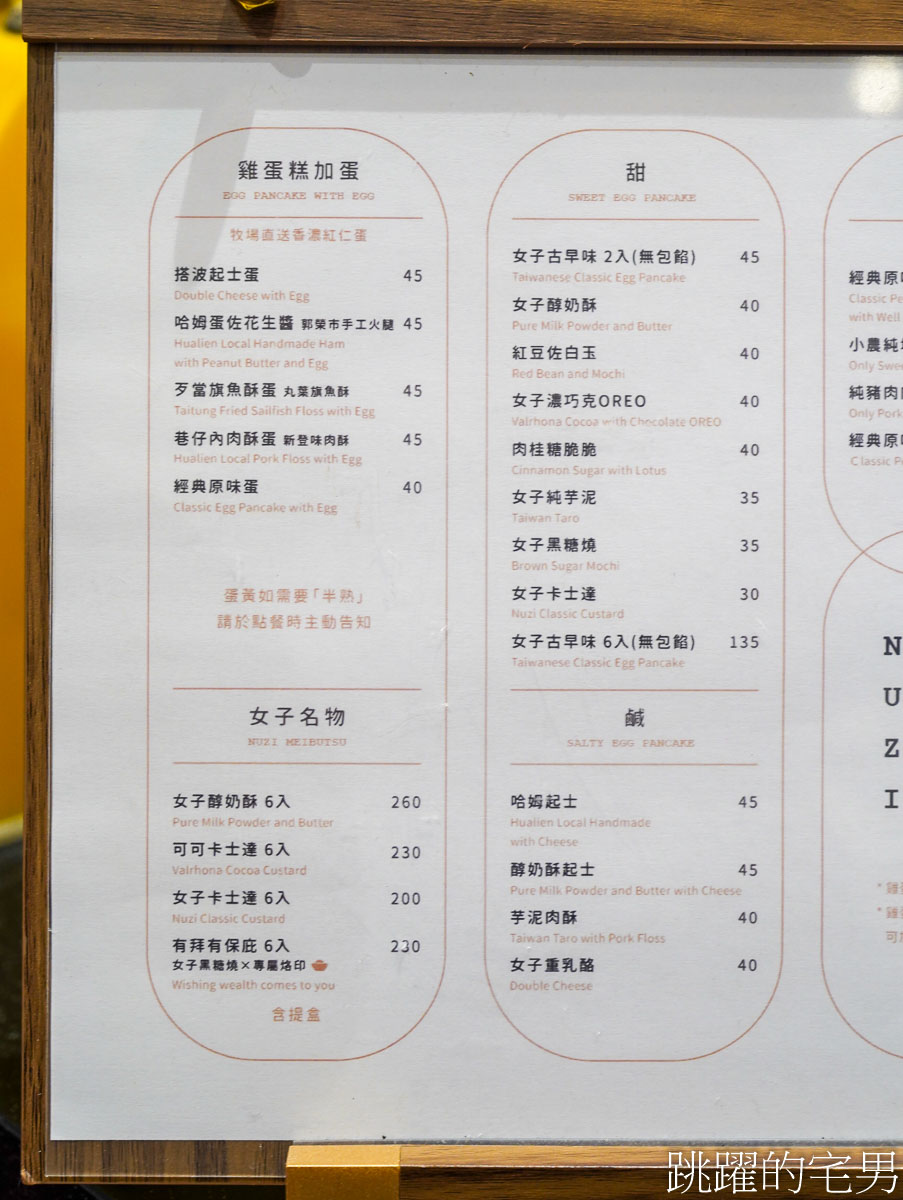 雞蛋糕加蛋
EGG PANCAKE WITH EGG
牧場直送香濃紅仁蛋
搭波起士蛋 45
Double Cheese with Egg
哈姆蛋佐花生醬 郭榮市手工火腿 45
Hualien Local Handmade Ham
with Peanut Butter and Egg
歹當旗魚酥蛋 丸葉旗魚酥 45
Taitung Fried Sailfish Floss with Egg
巷仔內肉酥蛋 新登味肉酥 45
Hualien Local Pork Floss with Egg
經典原味蛋 40
Classic Egg Pancake with Egg
蛋黃如需要「半熟」
請於點餐時主動告知
女子名物
NUZI MEIBUTSU
女子醇奶酥 6入 260
Pure Milk Powder and Butter
可可卡士達 6入 230
Valrhona Cocoa Custard
女子卡士達 6入 200
Nuzi Classic Custard
有拜有保庇 6入 230
女子黑糖燒×專屬烙印
Wishing wealth comes to you
含提盒
甜
SWEET EGG PANCAKE
女子古早味 2入(無包餡) 45
Taiwanese Classic Egg Pancake
女子醇奶酥 40
Pure Milk Powder and Butter
紅豆佐白玉 40
Red Bean and Mochi
女子濃巧克OREO 40
Valrhona Cocoa with Chocolate OREO
肉桂糖脆脆 40
Cinnamon Sugar with Lotus
女子純芋泥 35
Taiwan Taro
女子黑糖燒 35
Brown Sugar Mochi
女子卡士達 30
Nuzi Classic Custard
女子古早味 6入(無包餡) 135
Taiwanese Classic Egg Pancake
鹹
SALTY EGG PANCAKE
哈姆起士 45
Hualien Local Handmade
with Cheese
醇奶酥起士 45
Pure Milk Powder and Butter with Cheese
芋泥肉酥 40
Taiwan Taro with Pork Floss
女子重乳酪 40
Double Cheese
經典原
Classic Pe
with Well
小農純
Only Swee
純豬肉
Only Pork
經典原
Classic P
N
U
Z
I
* 雞
* 雞
可
跳躍的宅男